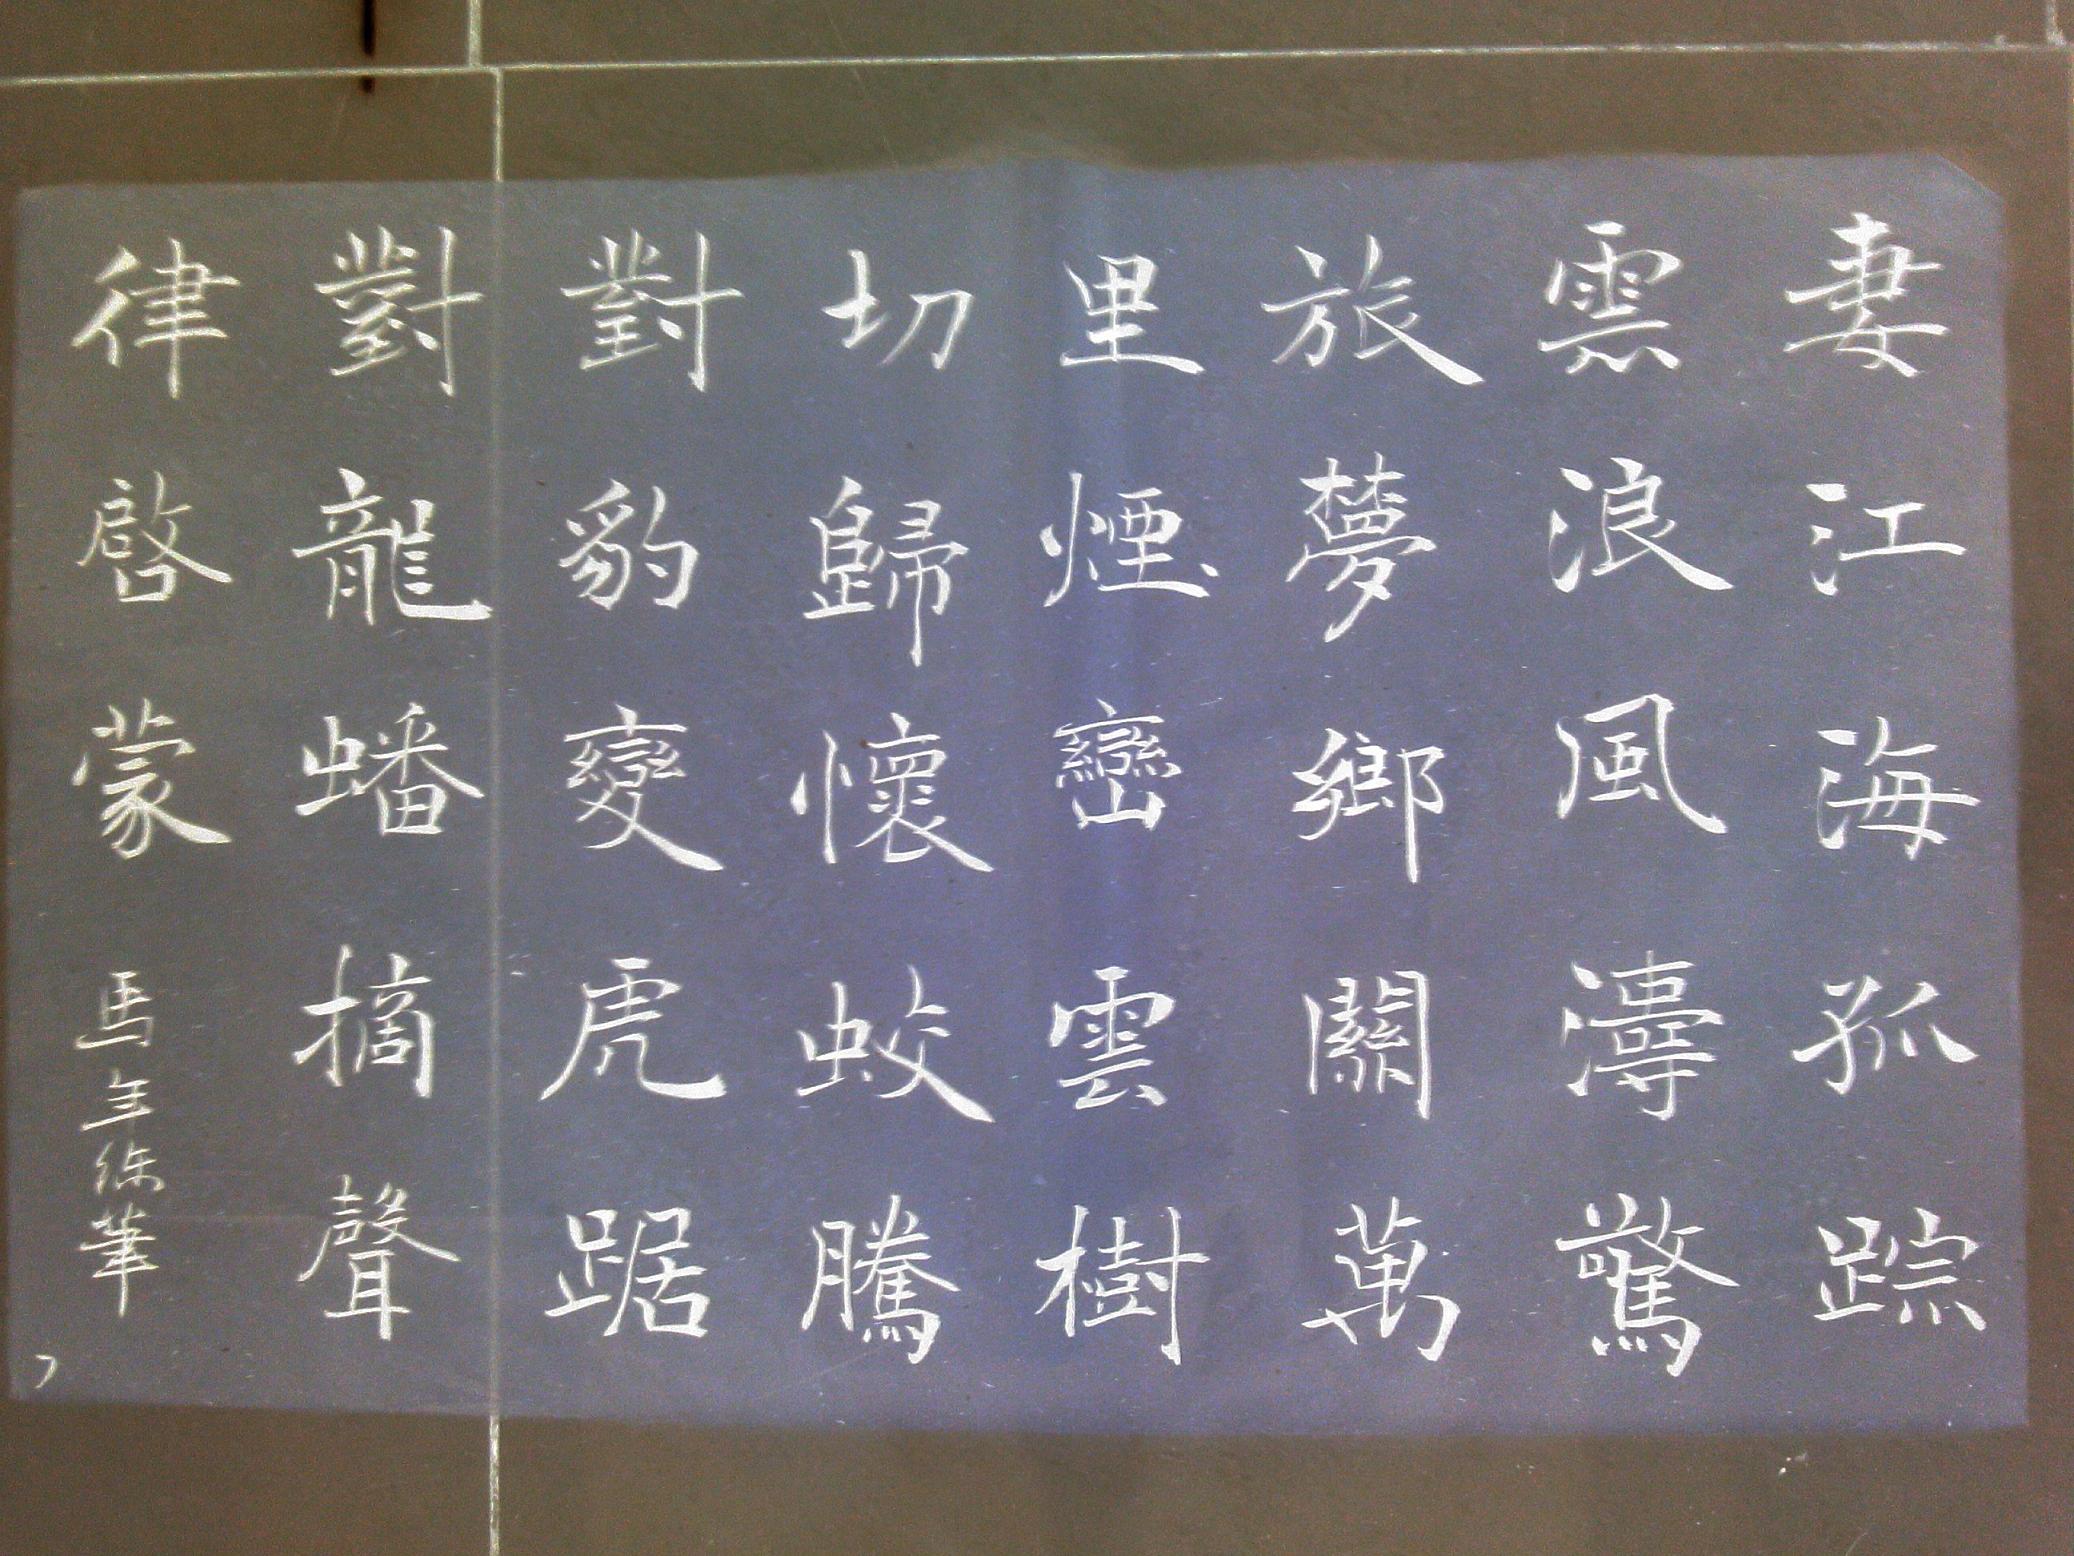 妻江海孤踪
浪風濤驚
旅夢鄉關萬
里煙巒雲樹
切歸懷蛟騰
對豹變虎踞
對龍蟠摘聲
律啓蒙 馬年练筆